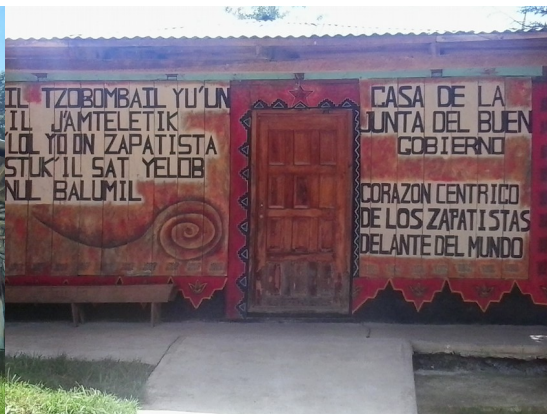 IL TZOBOMBAIL YU'UN
IL J'AMTELETIK
LOL YO'ON ZAPATISTA
STUK'IL SAT YELOB
NUL BALUMIL
CASA DE LA
JUNTA DEL BUEN
GOBIERNO
CORAZON CENTRICO
DE LOS ZAPATISTAS
DELANTE DEL MUNDO